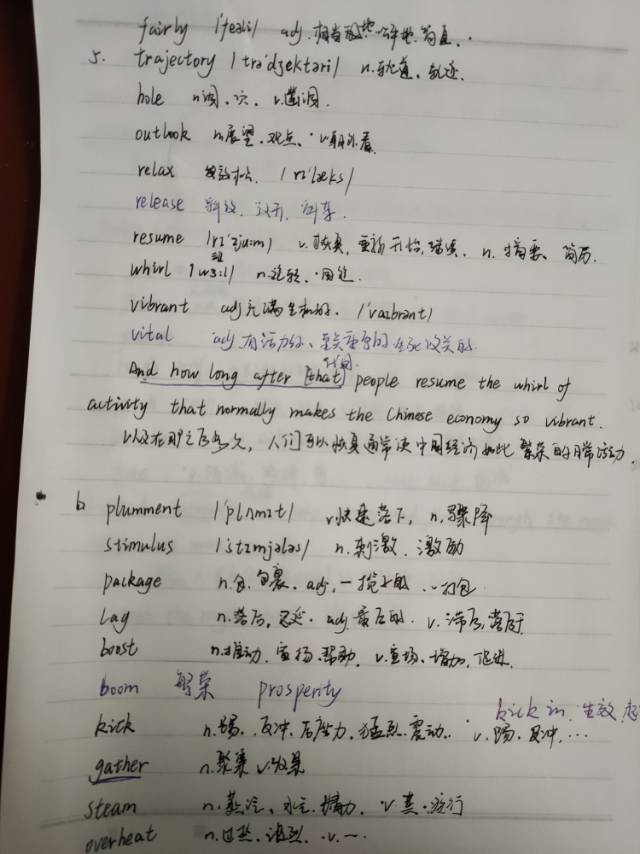 fairly /'feəli/ adj. 相当地 公平地 简直.
5. trajectory /trə'dʒektəri/ n. 轨道, 轨迹.
hole n洞、穴、v.凿洞.
outlook n.展望、观点、v朝外看
relax 放松 /rɪ'læks/
release 释放 放开
resume /rɪ'zju:m/ v. 恢复, 重新开始, 继续. n. 摘要、简历.
whirl /wɜ:l/ n.旋转
vibrant adj充满生机的. /'vaɪbrənt/
vital adj 有活力的、至关重要的 生死攸关的.
And how long after [that] people resume the whirl of
activity that normally makes the Chinese economy so vibrant.
以及在那之后多久, 人们可以恢复通常使中国经济如此繁荣的日常活动.
6 plumment /'plʌmɪt/ v快速落下, n.骤降
stimulus /'stɪmjələs/ n. 刺激. 激励
package n.包.包裹. adj. 一揽子的. v打包
lag n.落后, 延迟. adj. 最后的. v. 滞后, 落后于
boost n.推动, 宣扬、帮助, v.宣扬、增加, 促进
boom 繁荣 prosperity
kick in. 生效
kick n.踢.、反冲.后座力.猛烈.震动. v. 踢.反冲....
gather n.聚集 v.收集
steam n.蒸汽、水汽. 精力. v.蒸.航行
overheat n.过热.激烈. v. ~.